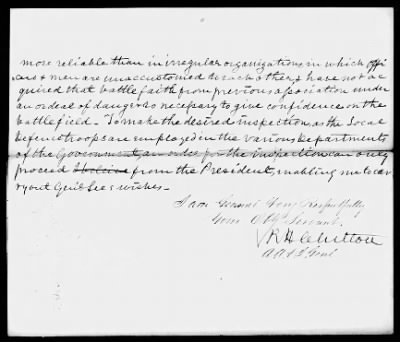 more reliable than in irregular organizations, in which offi
cers & men are unaccustomed to each other, & have not ac
quired that battle faith from previous association under
an ordeal of danger so necessary to give confidence on the
battle field. To make the desired inspection, as the Local
Defense troops are employed in the various Departments
of the Government, an order for the inspection can only
proceed I believe from the President, enabling me to car
ry out Genl Lee's wishes.
I am General Very Respectfully
Your Obt Servant
R H Chilton
A A & I Genl